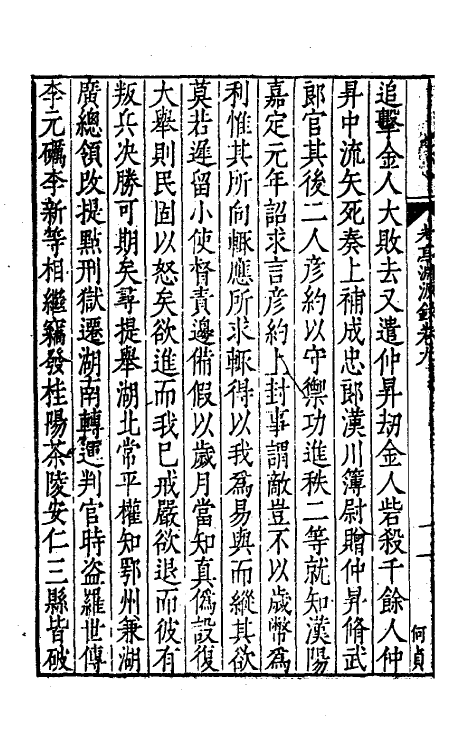 考亭淵源錄卷九
何貞
追擊金人大敗去又遣仲昇刼金人砦殺千餘人仲
昇中流矢死奏上補成忠郎漢川簿尉贈仲昇脩武
郎官其後二人彦約以守禦功進秩二等就知漢陽
嘉定元年詔求言彦約上封事謂敵豈不以歲幣爲
利惟其所向輒應所求輒得以我爲易與而縱其欲
莫若遲留小使督責邊備假以歲月當知真僞設復
大舉則民固以怒矣欲進而我巳戒嚴欲退而彼有
叛兵决勝可期矣尋提舉湖北常平權知鄂州兼湖
廣總領改提點刑獄遷湖南轉運判官時盗羅世傳
李元礪李新等相繼竊發桂陽茶陵安仁三縣皆破